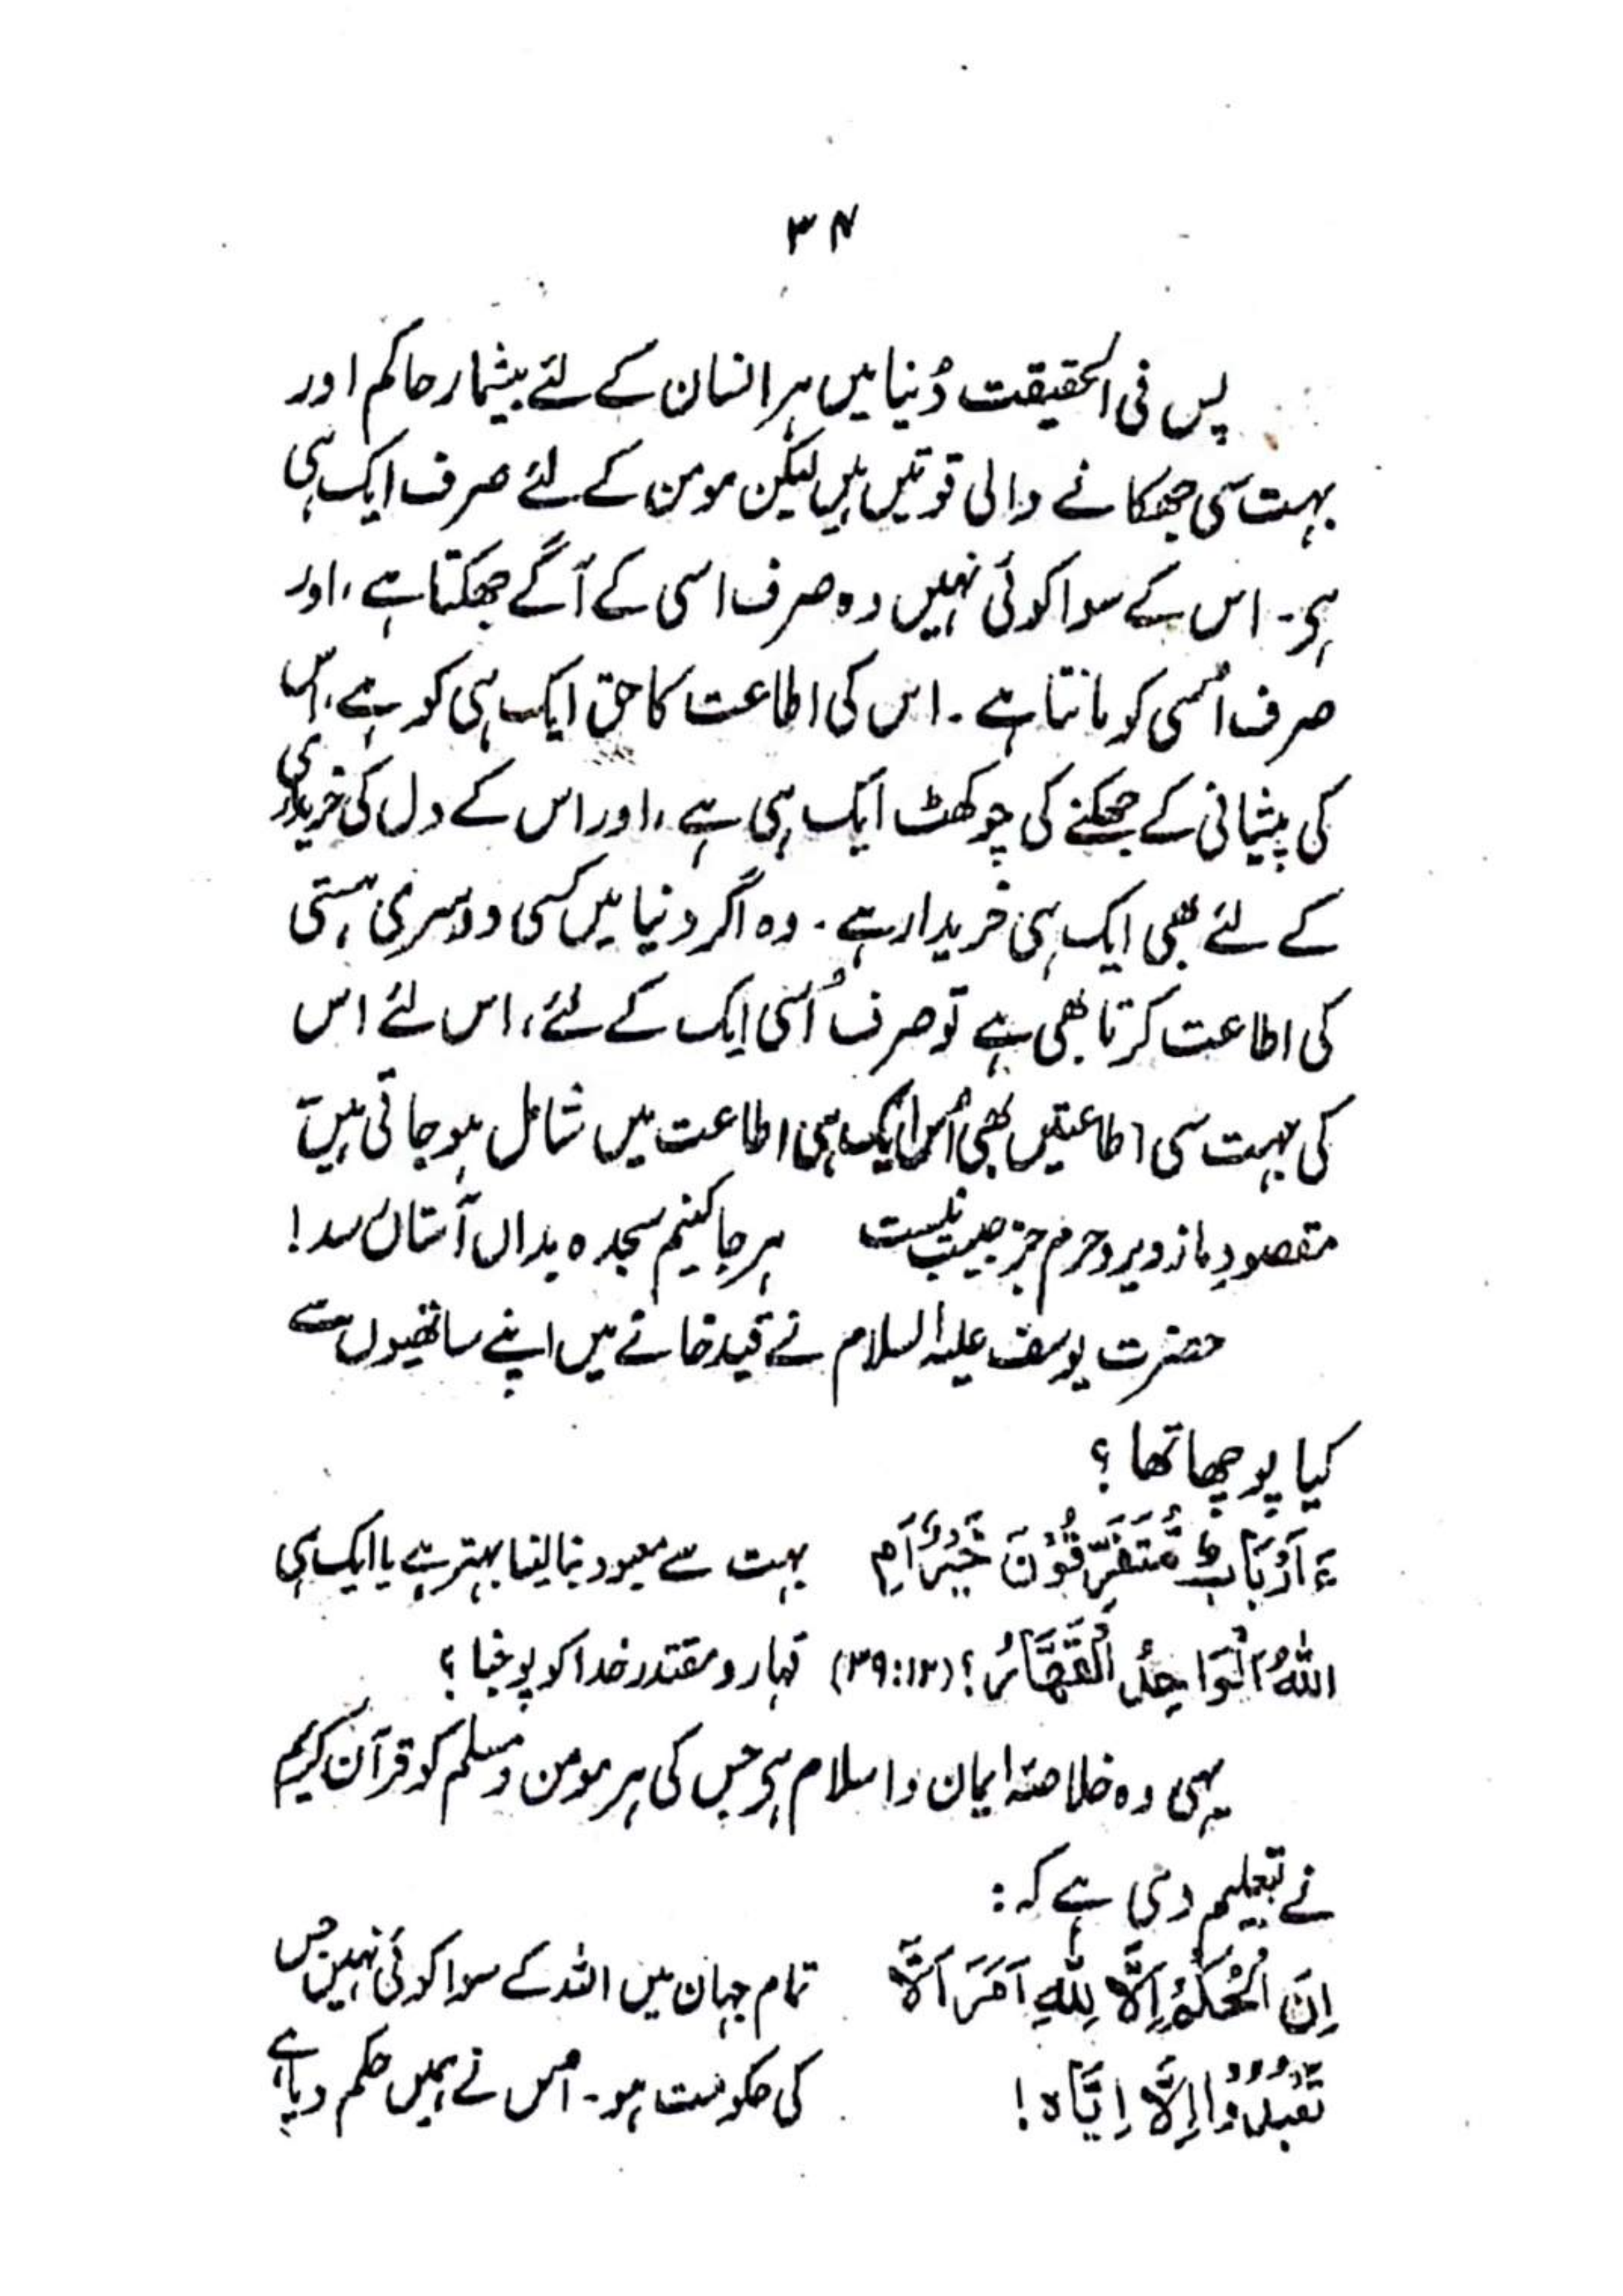 ۳۴
پس فی الحقیقت دُنیا میں ہر انسان کے لئے بیشمار حاکم اور
بہت سی جھکانے والی قوتیں ہیں لیکن مومن کے لئے صرف ایک ہی
ہی۔ اس کے سوا کوئی نہیں وہ صرف اسی کے آگے جھکتا ہے، اور
صرف اُسی کو مانتا ہے۔ اس کی اطاعت کا حق ایک ہی کو ہے، اس
کی پیشانی کے جھکنے کی چوکھٹ ایک ہی ہے، اور اس کے دل کی خریداری
کے لئے بھی ایک ہی خریدار ہے۔ وہ اگر دنیا میں کسی دوسری ہستی
کی اطاعت کرتا بھی ہے تو صرف اُسی ایک کے لئے، اس لئے اس
کی بہت سی اطاعتیں بھی اُس ایک ہی اطاعت میں شامل ہو جاتی ہیں
مقصودِ ما ز دیر و حرم جز حبیب نیست ہر جا کنیم سجدہ بداں آستاں رسد!
حضرت یوسف علیہ السلام نے قید خانے میں اپنے ساتھیوں سے
کیا پوچھا تھا؟
ءَاَرْبَابٌ مُّتَفَرِّقُوْنَ خَيْرٌ اَمِ بہت سے معبود بنا لینا بہتر ہے یا ایک ہی
اللّٰهُ الْوَاحِدُ الْقَهَّارُ؟ (۱۲:۳۹) قہار و مقتدر خدا کو پوجنا؟
یہی وہ خلاصۂ ایمان و اسلام ہی جس کی ہر مومن و مسلم کو قرآن کریم
نے تعلیم دی ہے کہ:
اِنِ الْحُكْمُ اِلَّا لِلّٰهِ اَمَرَ اَلَّا تمام جہان میں اللہ کے سوا کوئی نہیں جس
تَعْبُدُوْا اِلَّا اِيَّاہ! کی حکومت ہو۔ اُس نے ہمیں حکم دیا ہے